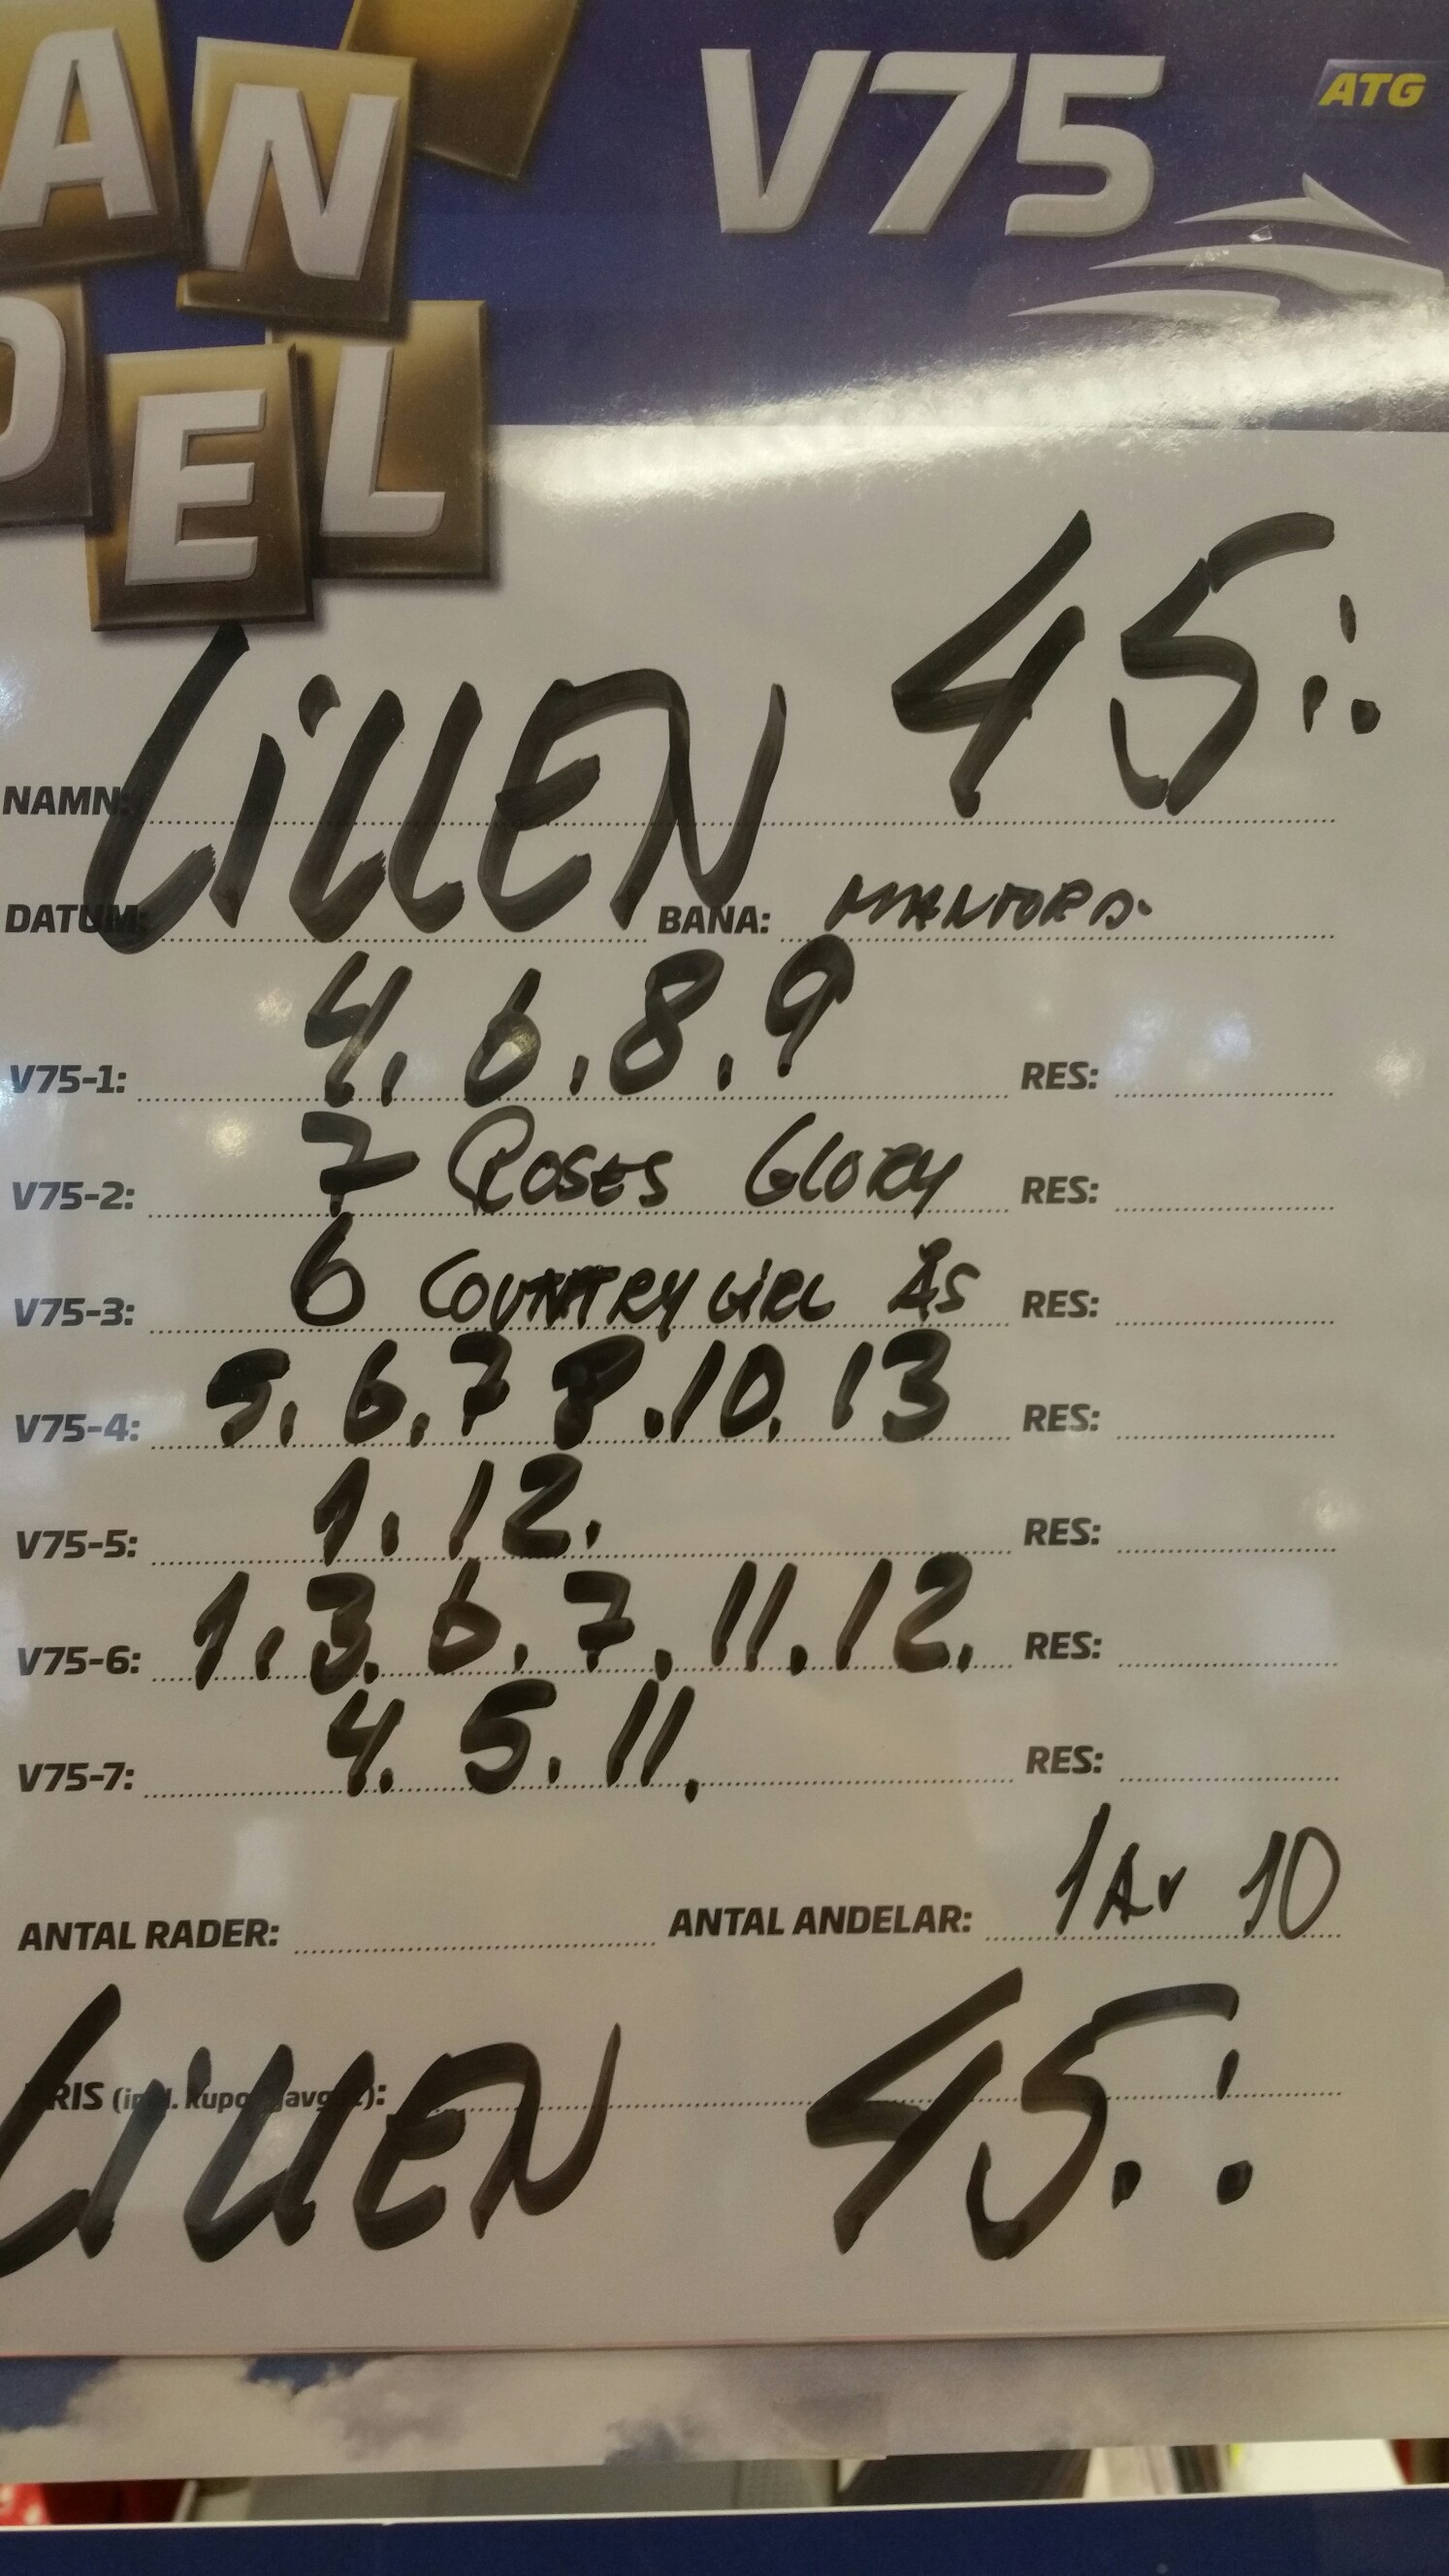 AN V75 ATG
DEL
LiLLEN 45:
NAMN:
DATUM: BANA: MANTORP.
V75-1: 4, 6, 8, 9 RES:
V75-2: 7 ROSES GLORY RES:
V75-3: 6 COUNTRY GiRL ÅS RES:
V75-4: 5, 6, 7 8, 10, 13 RES:
V75-5: 1, 12, RES:
V75-6: 1, 3, 6, 7, 11, 12, RES:
V75-7: 4, 5, 11, RES:
ANTAL RADER: ANTAL ANDELAR: 1 Av 10
LiLLEN 45: